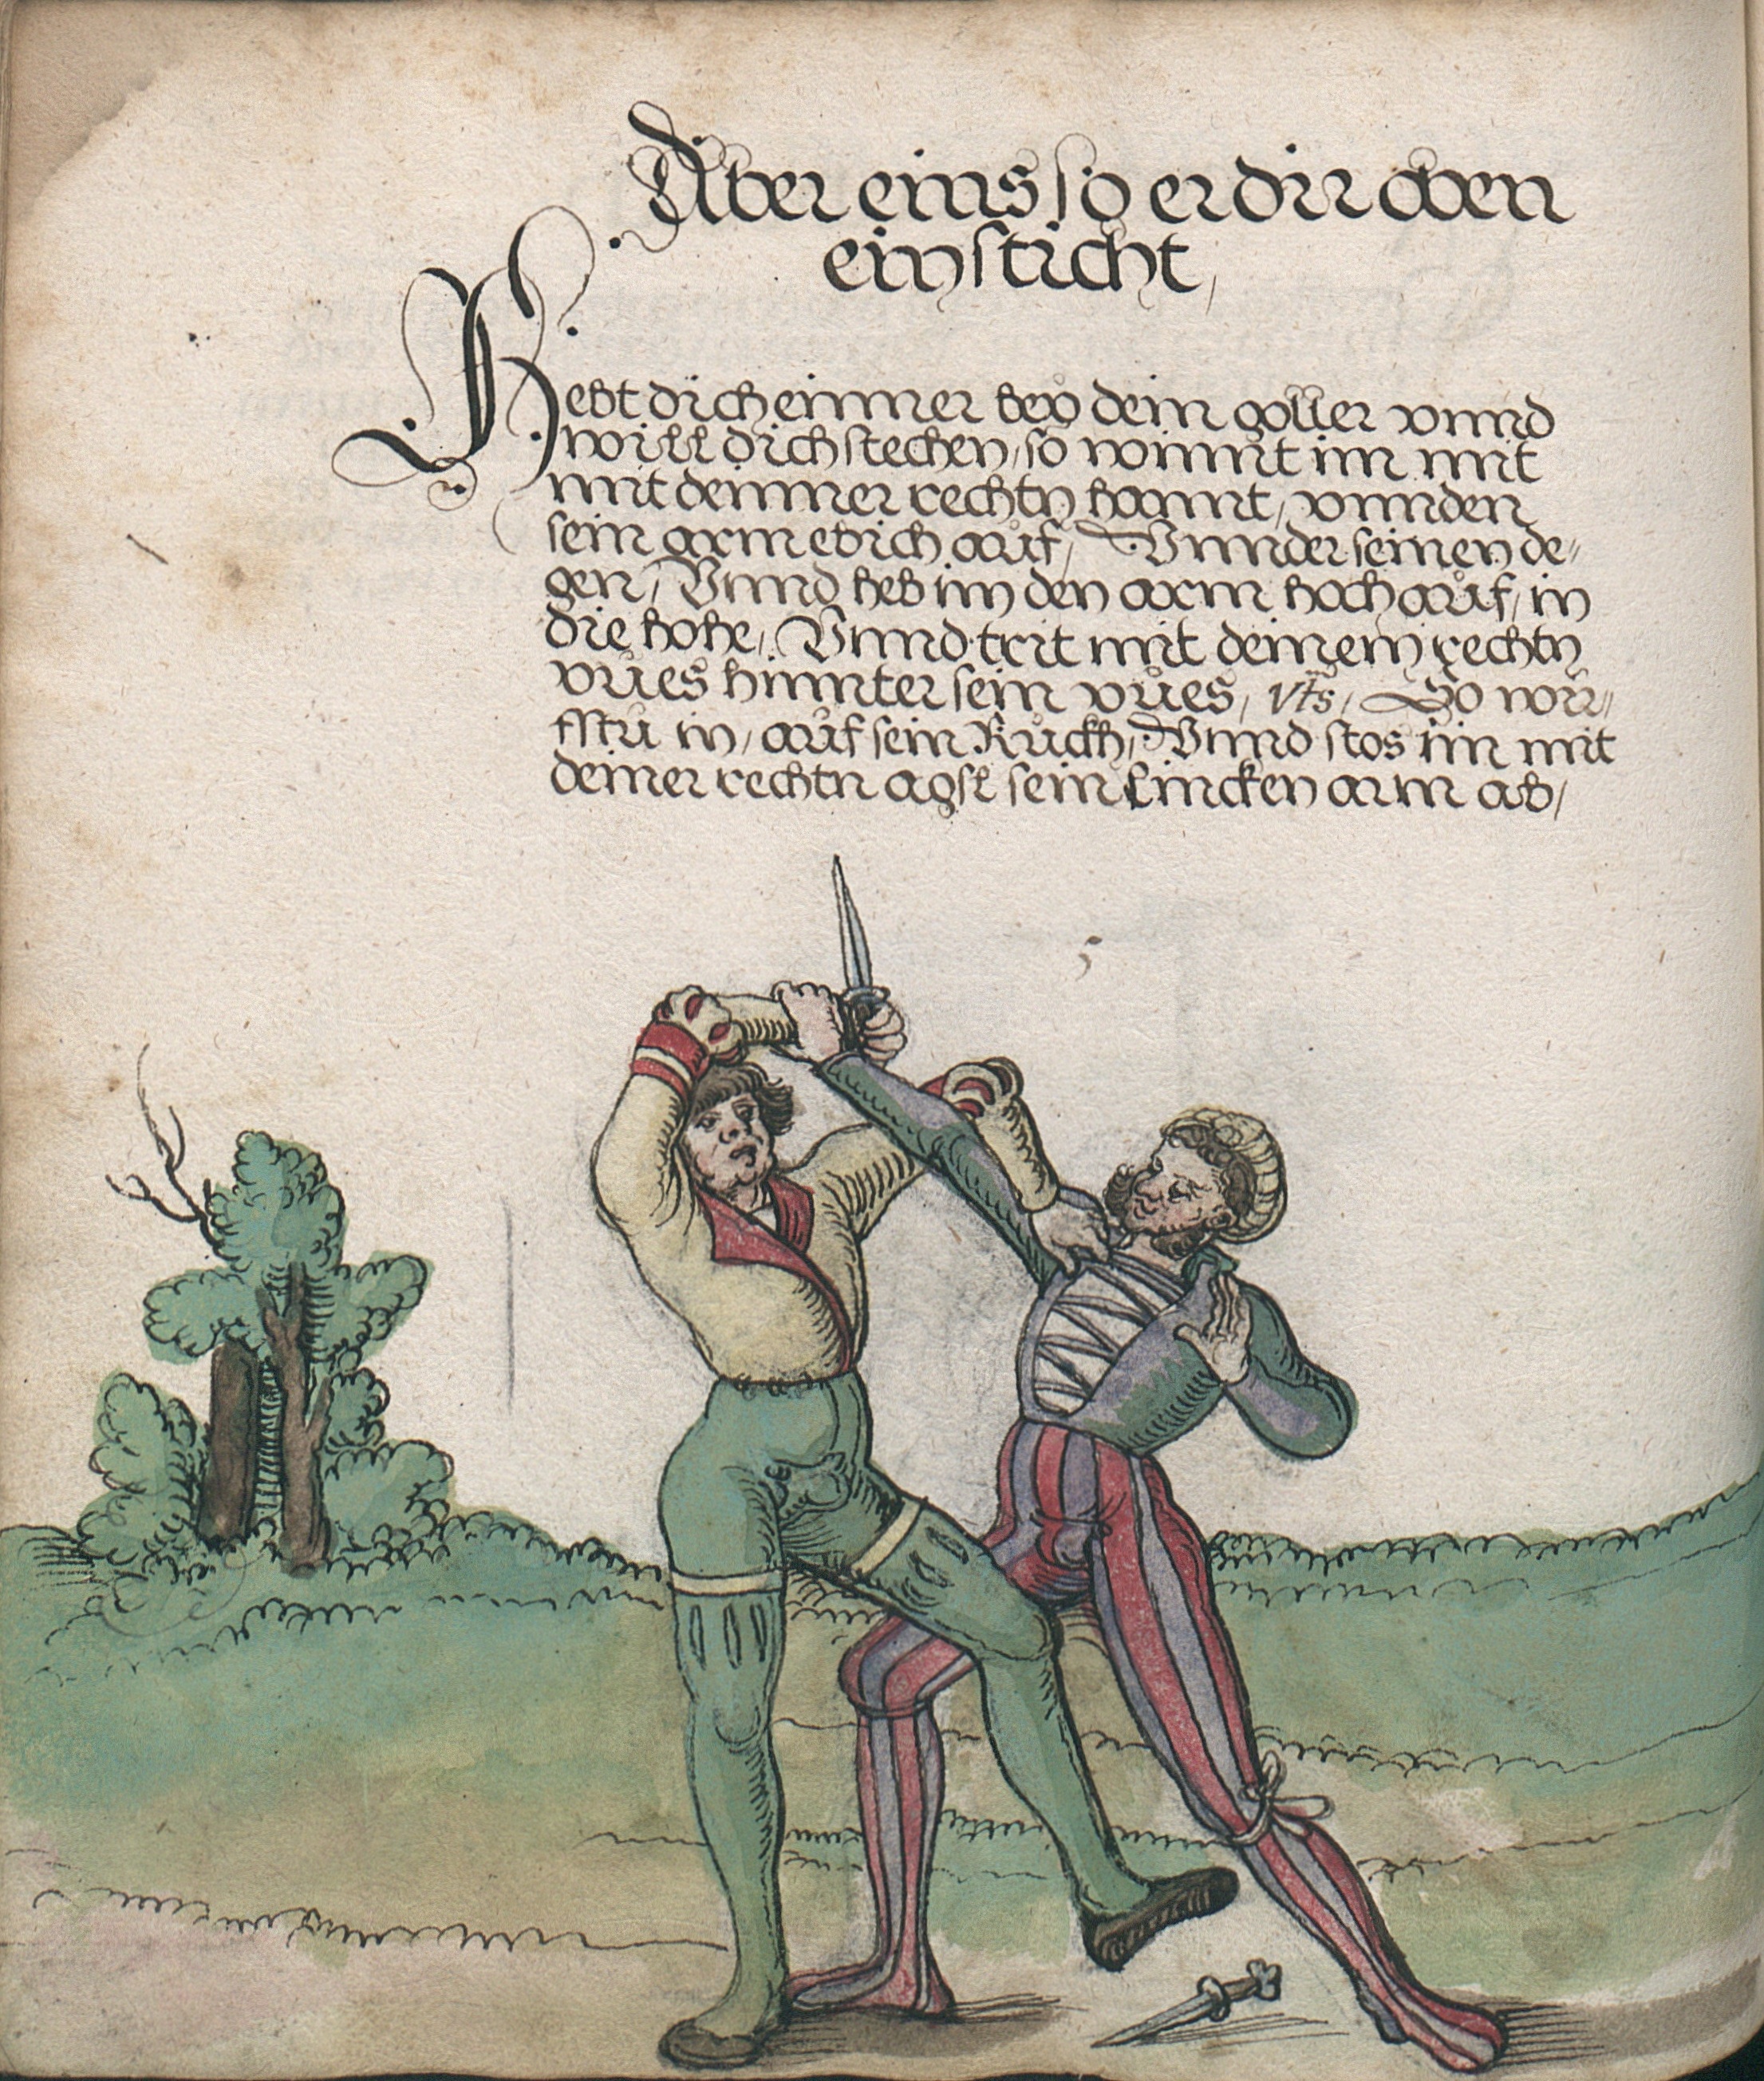 Aber eins so er dir oben
einsticht,
Hebt dich einner bey dem goller vnnd
will dich stechen, so nimt im mit
mit deinner rechtn hannt, vnnden
sein arm ebich auf, Vnnder seinen de„
gen, Vnnd heb im den arm hoch auf, in
die hohe, Vnnd trit mit deinem rechtn
vues hinnter sein vues, vts, So wür„
fstu in, auf sein Ruckh, Vnnd stos im mit
deiner rechtn agsl sein lincken arm ab,